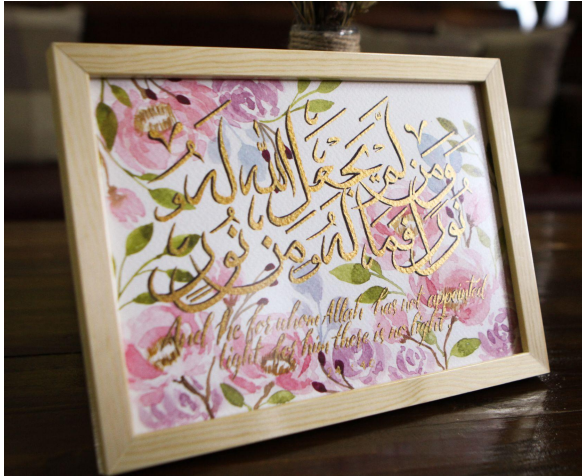 وَمَن لَّمْ يَجْعَلِ اللَّهُ لَهُ
نُورًا فَمَا لَهُ مِن نُّورٍ
And he for whom Allah has not appointed
light, for him there is no light